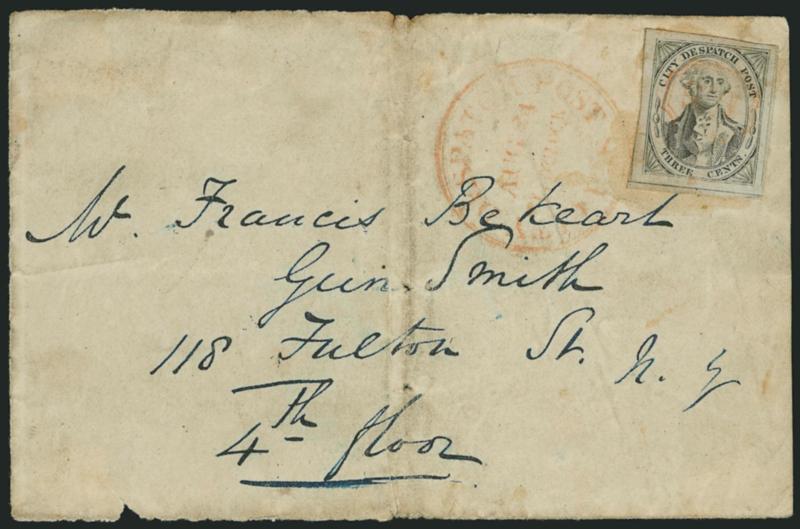 CITY DESPATCH POST
THREE CENTS.
POST
AUG 24
Mr. Francis Bekeart
Gun Smith
118 Fulton St. N. Y
4Th floor